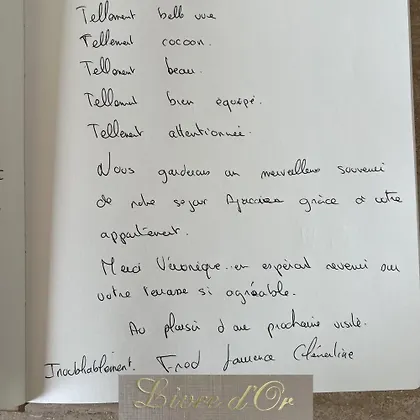 Tellement belle vue
Tellement cocoon.
Tellement beau.
Tellement bien équipé.
Tellement attentionnée.
Nous garderons un merveilleux souvenir
de notre séjour Ajaccien grâce à votre
appartement.
Merci Véronique, en espérant revenir sur
votre terrasse si agréable.
Au plaisir d'une prochaine visite.
Inoubliablement. Fred Laurence Clémentine
Livre d'Or